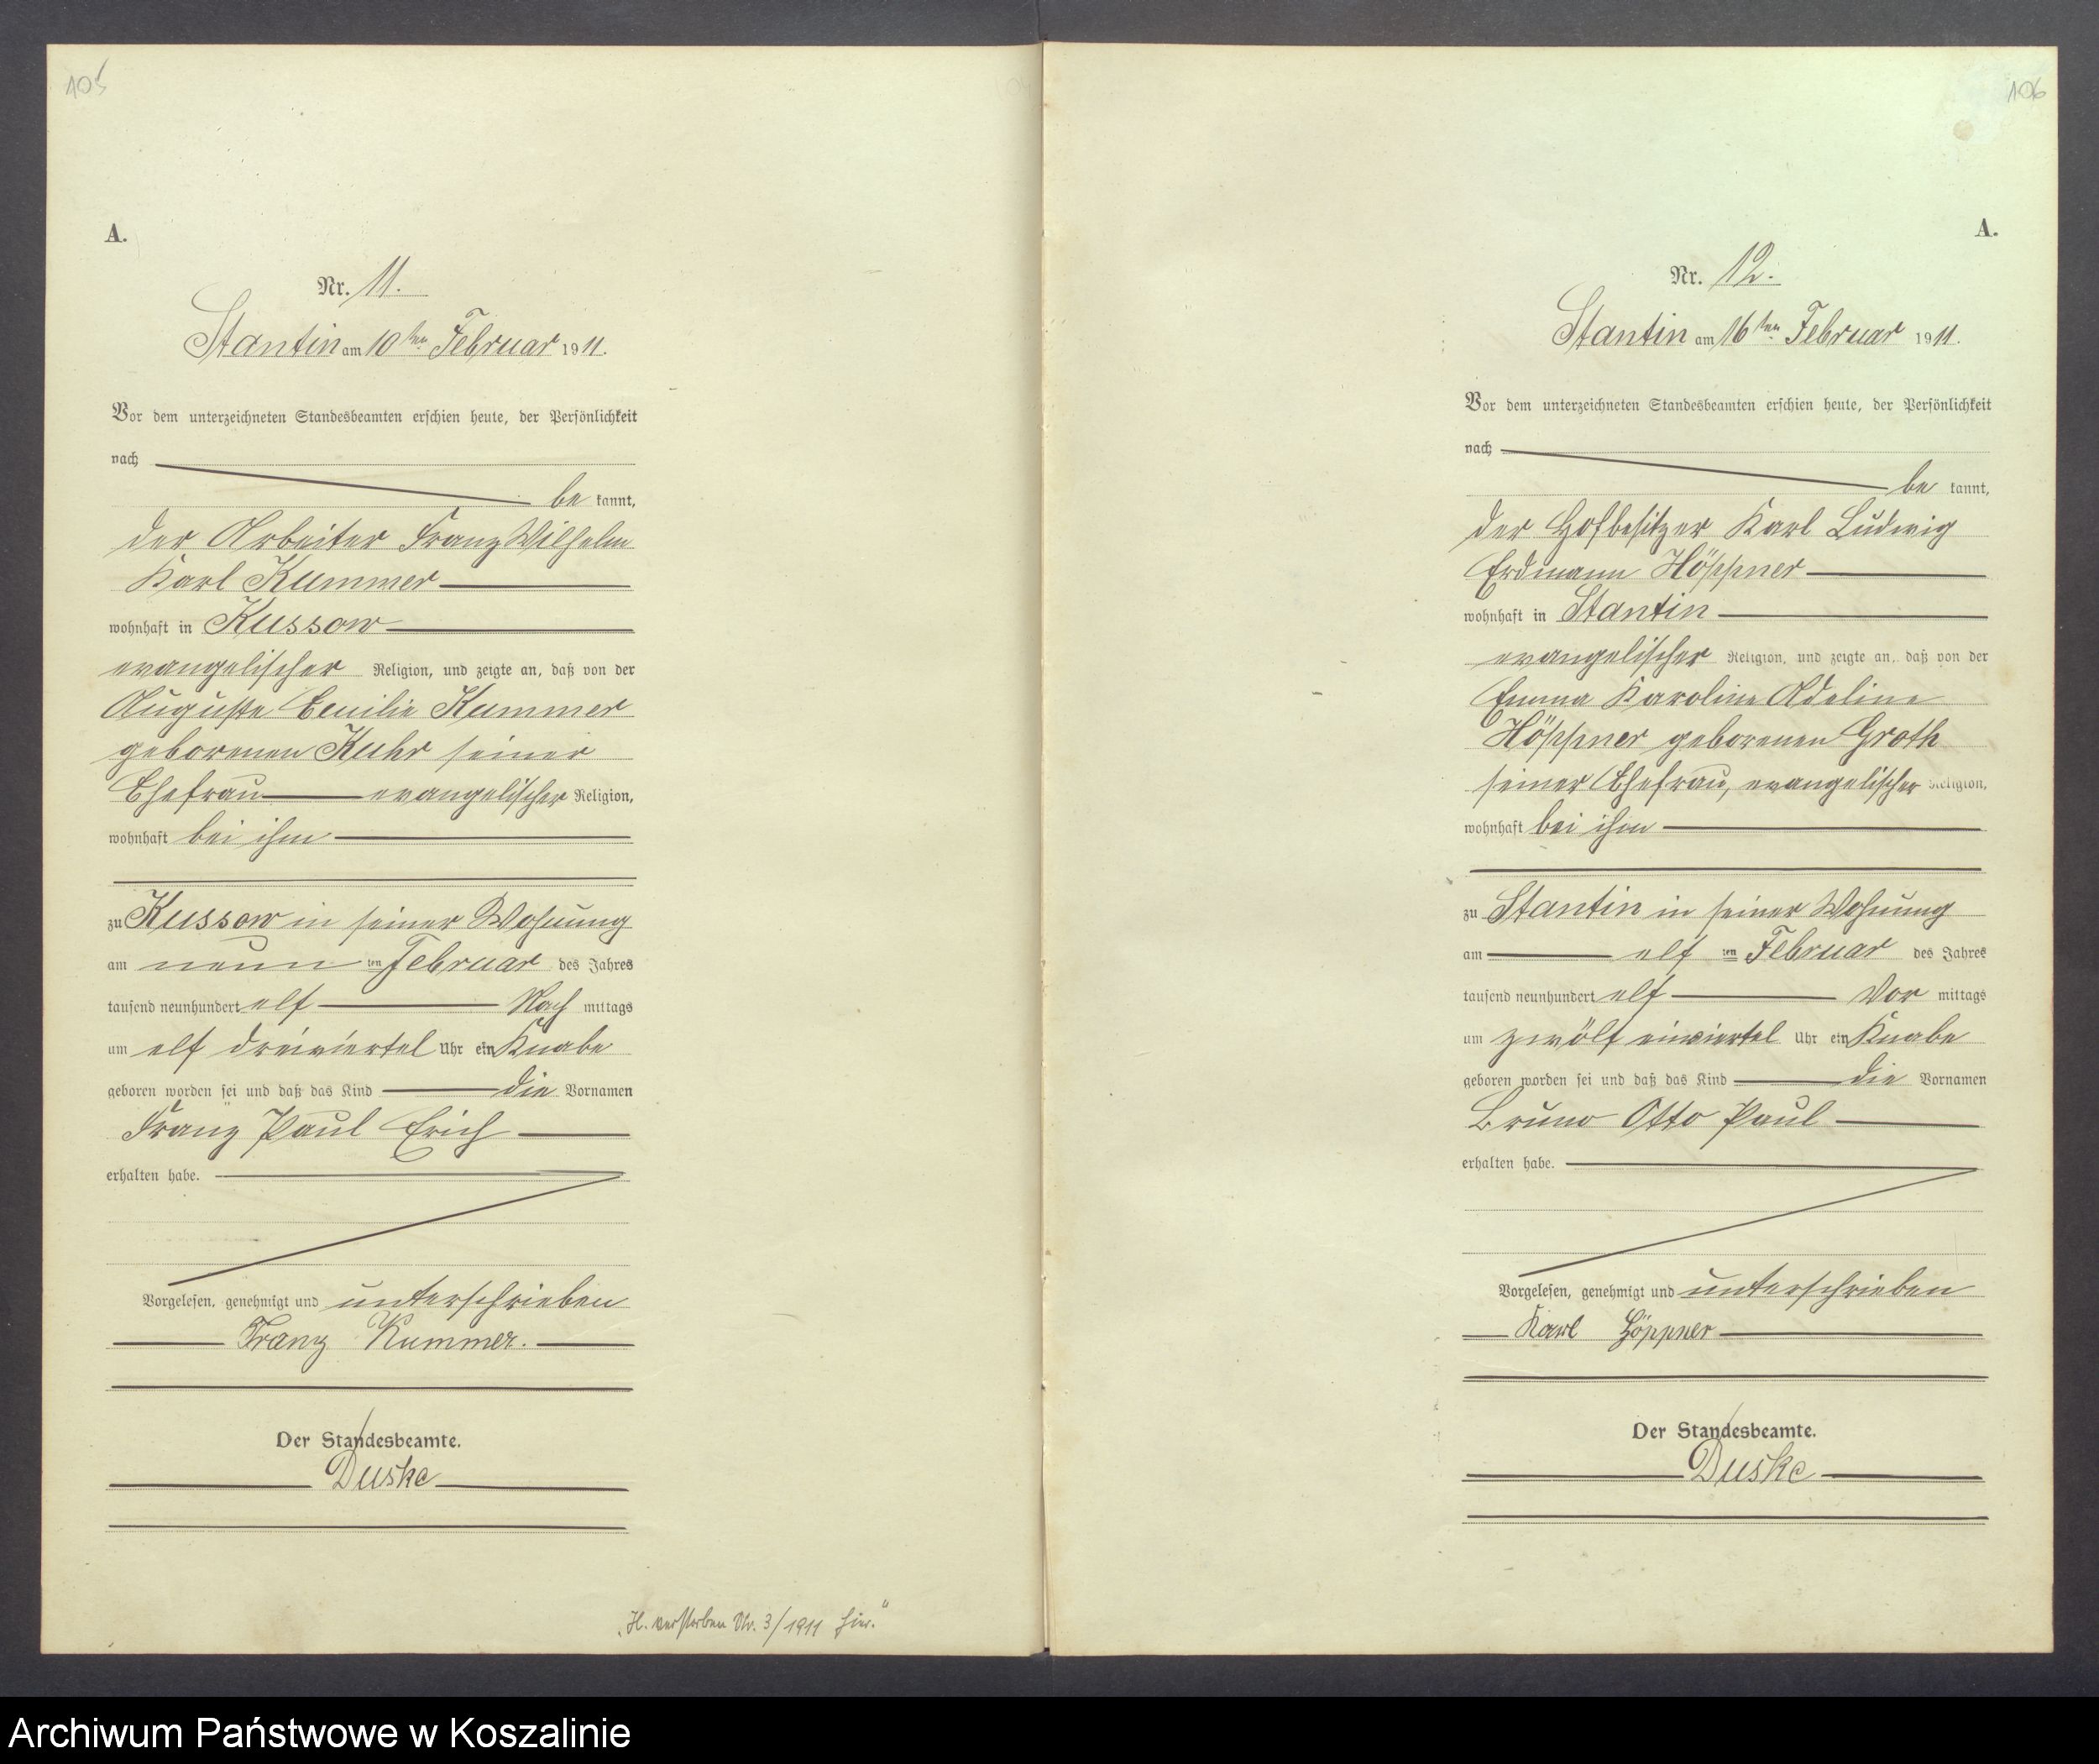 105
A.
Nr. 11.
Stantin am 10ten Februar 1911.
Vor dem unterzeichneten Standesbeamten erschien heute, der Persönlichkeit
nach
be kannt,
der Arbeiter Franz Wilhelm
Karl Kummer
wohnhaft in Kussow
evangelischer Religion, und zeigte an, daß von der
Auguste Emilie Kummer
geborenen Kuhr seiner
Ehefrau evangelischer Religion,
wohnhaft bei ihm
zu Kussow in seiner Wohnung
am neun ten Februar des Jahres
tausend neunhundert elf Nach mittags
um elf dreiviertel Uhr ein Knabe
geboren worden sei und daß das Kind die Vornamen
Franz Paul Erich
erhalten habe.
Vorgelesen, genehmigt und unterschrieben
Franz Kummer.
Der Standesbeamte.
Duske
„H. verstorben Nr. 3/1911 hier.“
106
A.
Nr. 12.
Stantin am 16ten Februar 1911.
Vor dem unterzeichneten Standesbeamten erschien heute, der Persönlichkeit
nach
be kannt,
der Hofbesitzer Karl Ludwig
Erdmann Höppner
wohnhaft in Stantin
evangelischer Religion, und zeigte an, daß von der
Emma Karoline Adeline
Höppner geborenen Groth
seiner Ehefrau, evangelischer Religion,
wohnhaft bei ihm
zu Stantin in seiner Wohnung
am elf ten Februar des Jahres
tausend neunhundert elf Vor mittags
um zwölf einviertel Uhr ein Knabe
geboren worden sei und daß das Kind die Vornamen
Bruno Otto Paul
erhalten habe.
Vorgelesen, genehmigt und unterschrieben
Karl Höppner
Der Standesbeamte.
Duske
Archiwum Państwowe w Koszalinie